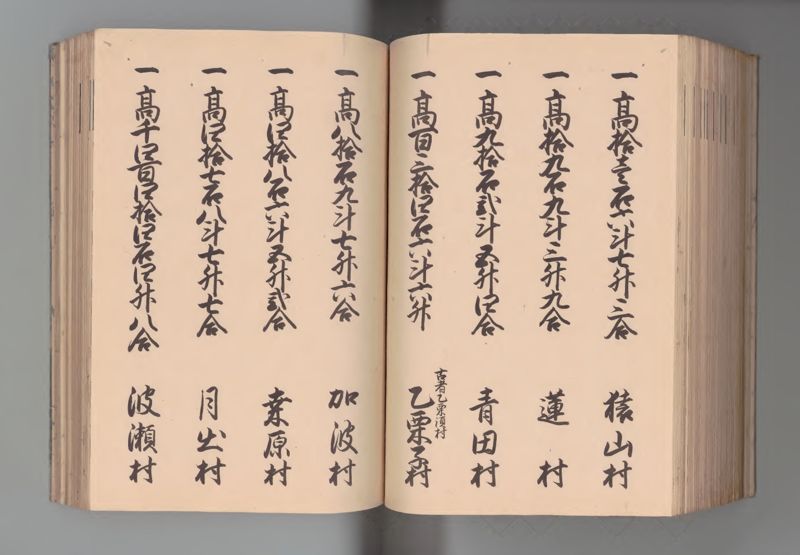 一 高拾壱石六斗七升三合 猿山村
一 高拾九石九斗三升九合 蓮村
一 高九拾石弐斗五升四合 青田村
古者乙栗須村
一 高百三拾四石六斗六升 乙栗子村
一 高八拾石九斗七升六合 加波村
一 高四拾八石六斗五升弐合 桒原村
一 高四拾七石八斗七升七合 月出村
一 高千四百四拾四石四升八合 波瀬村